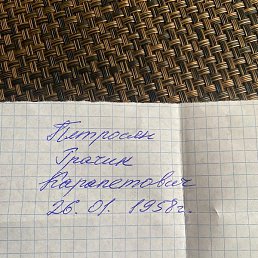 Петросян
Грачик
Карапетович
26. 01. 1958г.